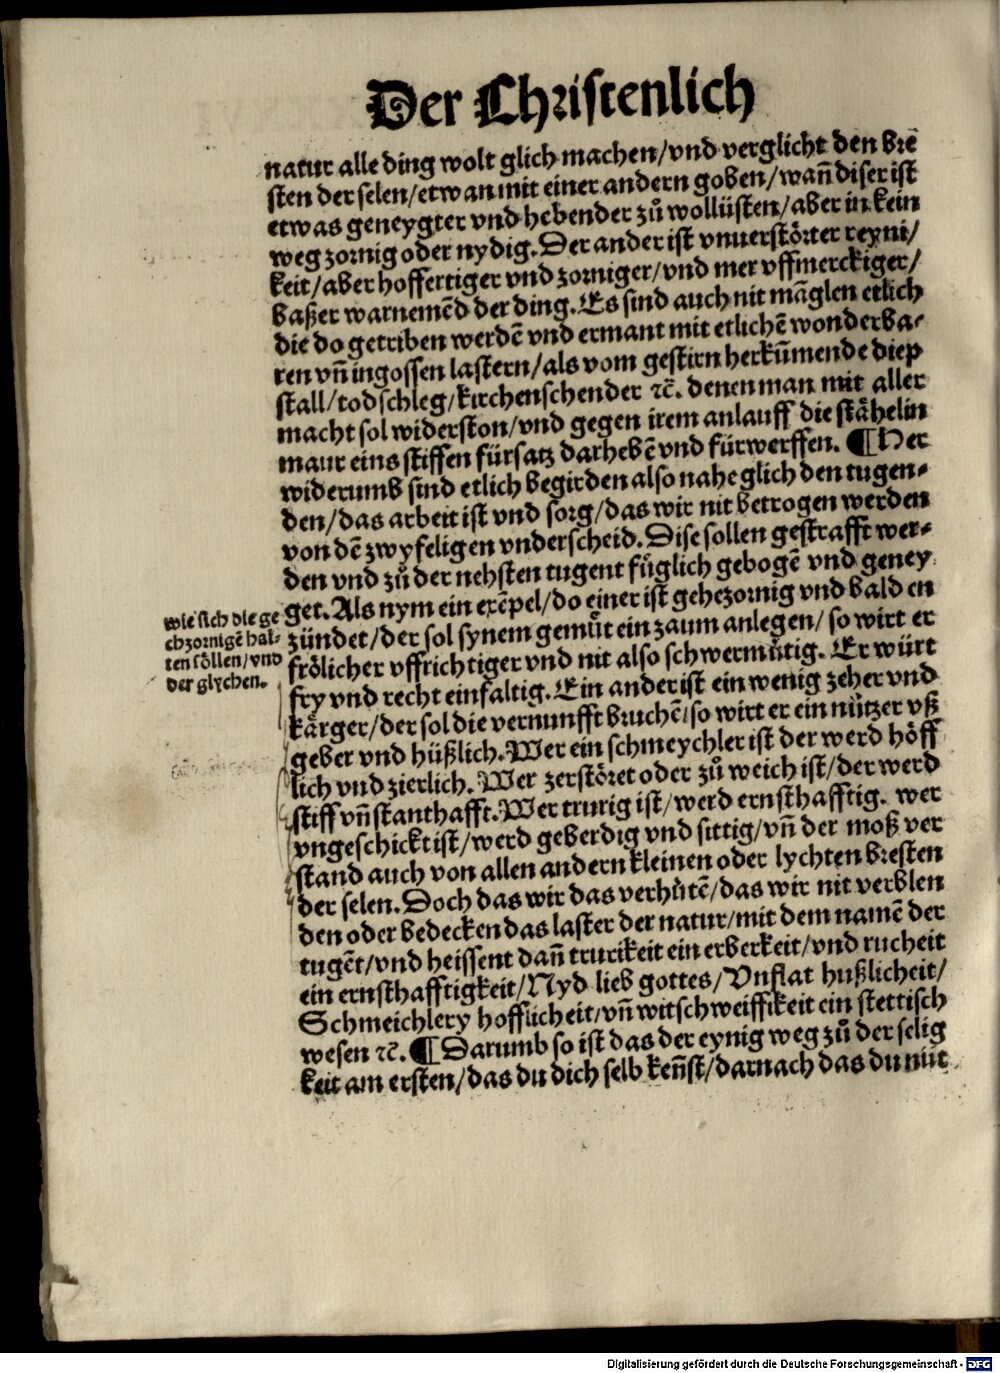 Der Christenlich
natur alle ding wolt glich machen/vnd verglicht den brē
sten der selen/etwan mit einer andern goben/wan̄ diser ist
etwas geneygter vnd hebender zů wollüsten/aber in kein
weg zornig oder nydig. Der ander ist vnuerstörter reyni/
keit/aber hoffertiger vnd zorniger/vnd mer vffmerckiger/
baßer warnemēd der ding. Es sind auch nit māglen etlich
die do getriben werdē vnd ermant mit etlichē wonderba⸗
ren vn̄ ingossen lastern/als vom gestirn herkūmende diep
stall/todschleg/kirchenschender ⁊c̄. denen man mit aller
macht sol widerston/vnd gegen irem anlauff die stähelin
maur eins stiffen fürsatz darhebē vnd fürwerffen. ¶Her
widerumb sind etlich begirden also nahe glich den tugen⸗
den/das arbeit ist vnd sorg/das wir nit betrogen werden
von dē zwyfeligen vnderscheid. Dise sollen gestrafft wer⸗
den vnd zů der nehsten tugent füglich gebogē vnd geney
get. Als nym ein exēpel/do einer ist gehezornig vnd bald en
zündet/der sol synem gemüt ein zaum anlegen/so wirt er
frölicher vffrichtiger vnd nit also schwermütig. Er würt
fry vnd recht einfaltig. Ein ander ist ein wenig zeher vnd
kärger/der sol die vernunfft bruchē/so wirt er ein nützer vß
geber vnd hüßlich. Wer ein schmeychler ist der werd höff
lich vnd zierlich. Wer zerstöret oder zů weich ist/der werd
stiff vn̄ stanthafft. Wer trurig ist/werd ernsthafftig. wer
vngeschickt ist/werd geberdig vnd sittig/vn̄ der moß ver
stand auch von allen andern kleinen oder lychten bresten
der selen. Doch das wir das verhůtē/das wir nit verblen
den oder bedecken das laster der natur/mit dem namē der
tugēt/vnd heissent dan̄ trurikeit ein erberkeit/vnd rucheit
ein ernsthafftigkeit/Nyd lieb gottes/Vnflat hußlicheit/
Schmeichlery hofflicheit/vn̄ witschweiffikeit ein stettisch
wesen ⁊c̄. ¶Darumb so ist das der eynig weg zů der selig
keit am ersten/das du dich selb ken̄st/darnach das du nüt
wie sich die ge
ehzornigē hal⸗
ten söllen/vnd
der glychen.
Digitalisierung gefördert durch die Deutsche Forschungsgemeinschaft - DFG